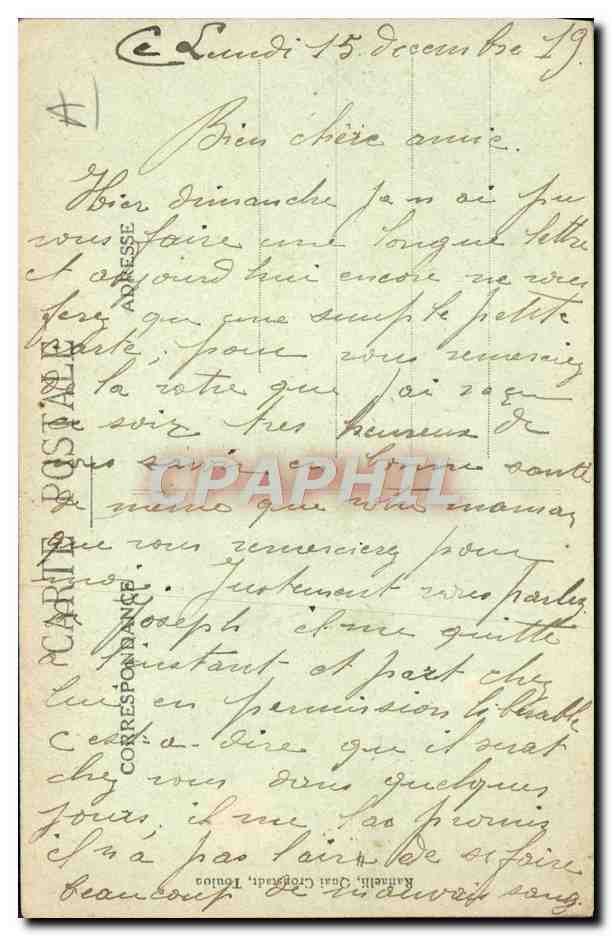 Ce Lundi 15 decembre 19
A
Bien chère amie.
Hier dimanche je n ai pu
vous faire une longue lettre
et aujourd hui encore ne vous
ferez qu une simple petite
carte, pour vous remerciez
de la votre que j ai reçu
ce soir très heureux de
vous savoir en bonne santé
de même que votre maman
que vous remercierez pour
moi. Justement vous parlez
Joseph il me quitte
l instant et part chez
lui en permission libérable
c est-a-dire que il serat
chez vous dans quelques
jours. il me la promis
il n'a pas l'air de se faire
beaucoup de mauvais sang.
CARTE POSTALE
ADRESSE
CORRESPONDANCE
Raffaelli, Quai Cronstadt, Toulon
CPAPHIL